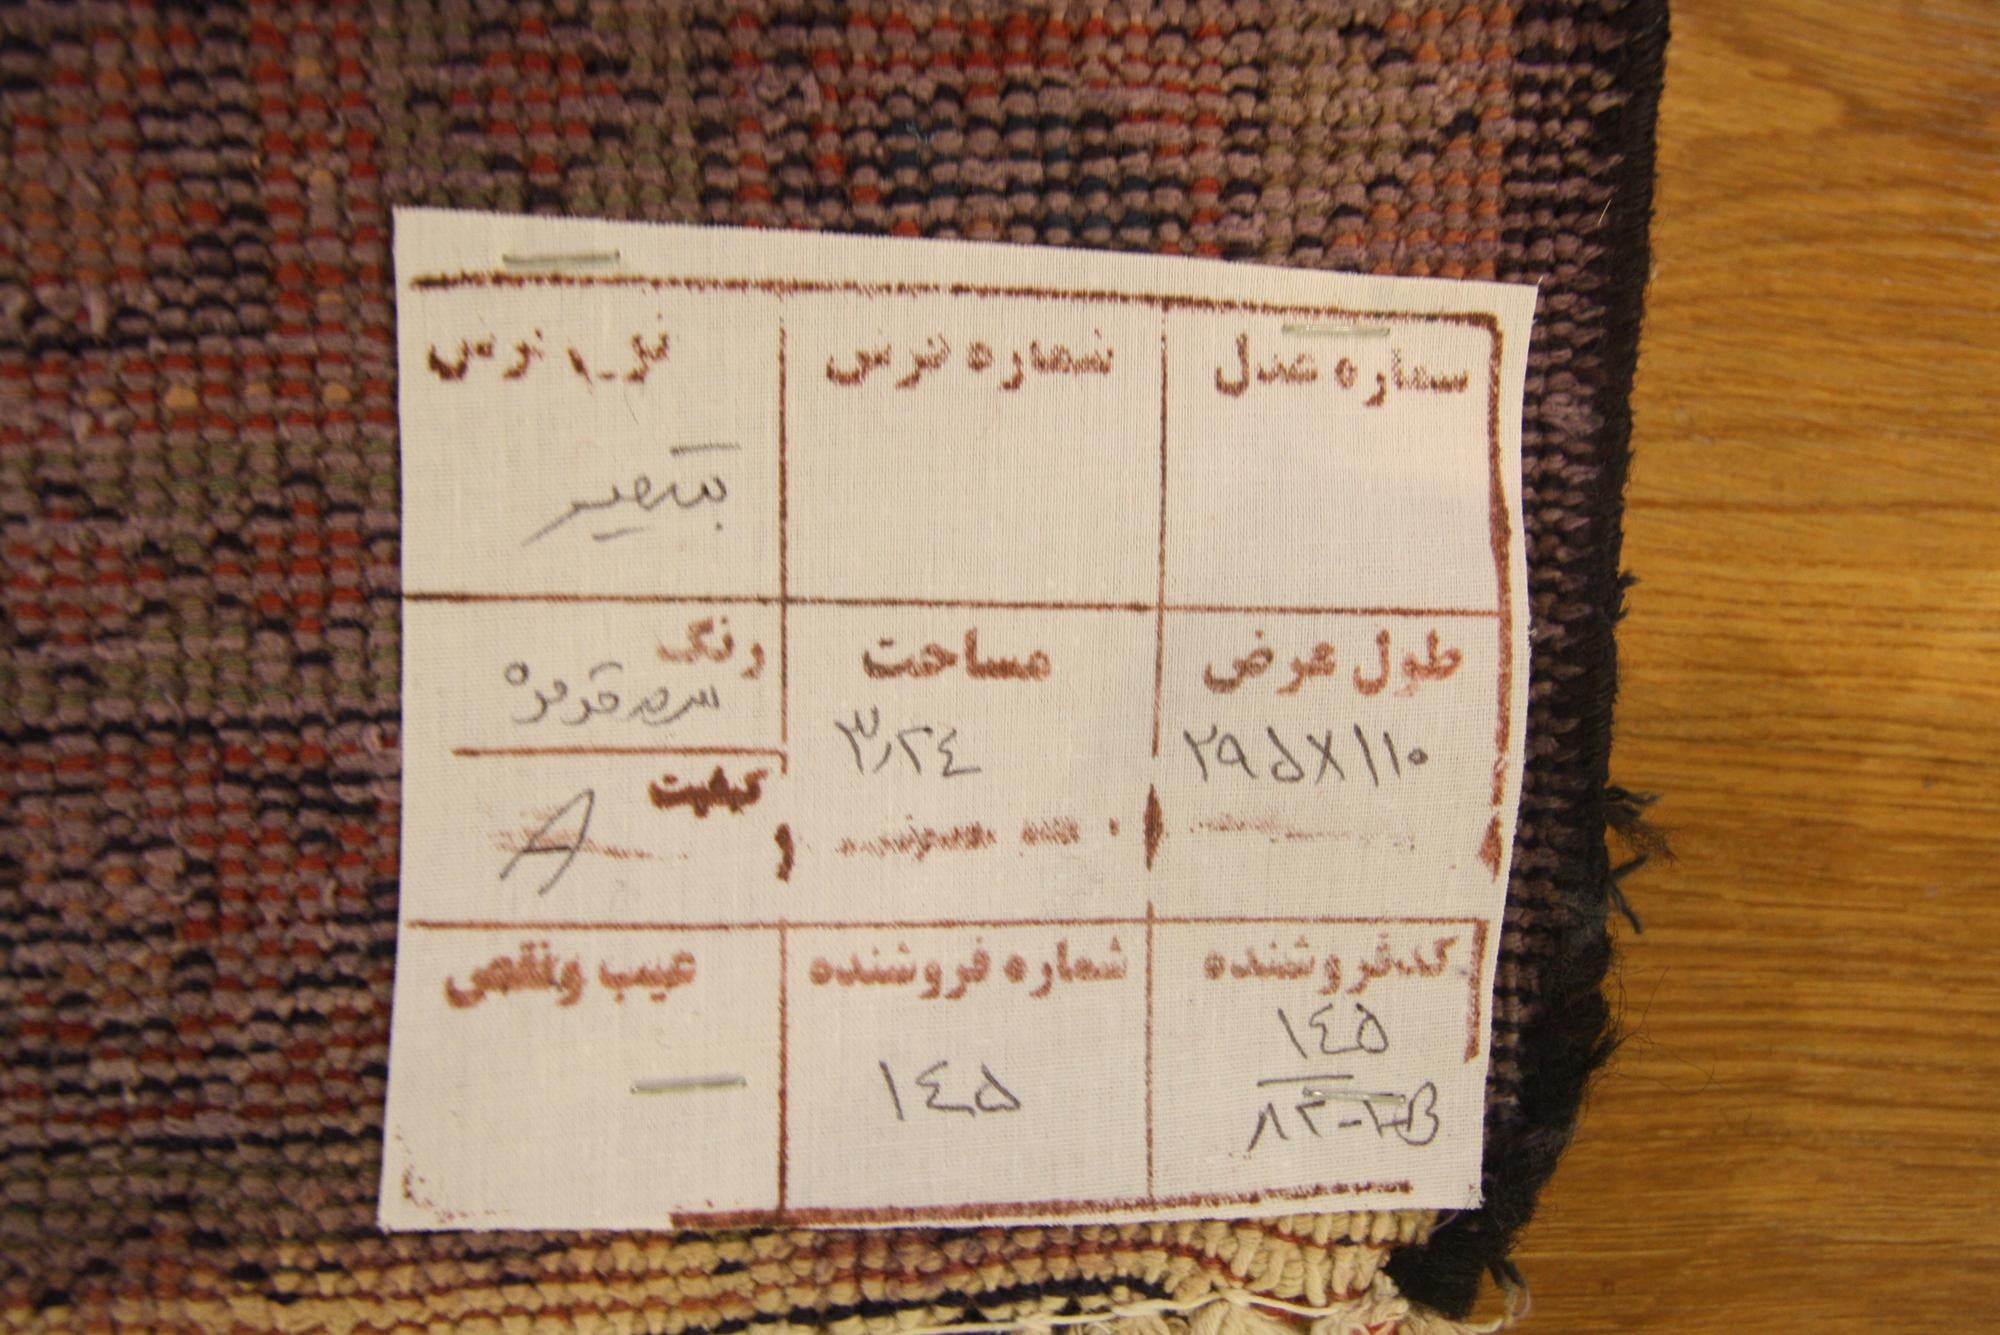 شماره عدل
شماره فرش
نوع فرش
طول عرض
۲۹۵X۱۱۰
مساحت
۳٫۲٤
رنگ
کیفیت
A
کد فروشنده
۱٤۵
۸۲-۱-B
شماره فروشنده
۱٤۵
عیب و نقص